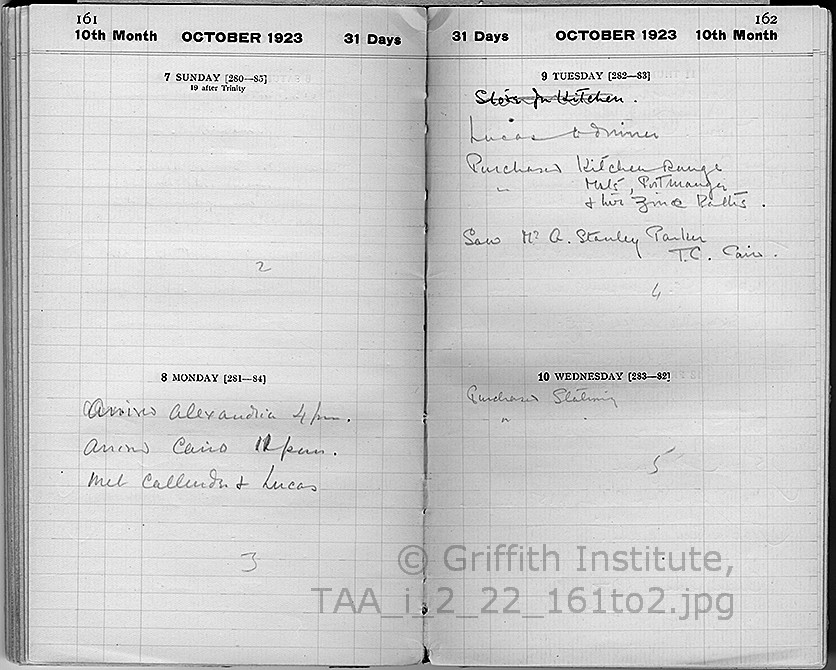 161
10th Month OCTOBER 1923 31 Days
7 SUNDAY [280—85]
19 after Trinity
2
8 MONDAY [281—84]
Arrived Alexandria 4 pm.
Arrived Cairo 11 pm.
Met Callender & Lucas
3
162
31 Days OCTOBER 1923 10th Month
9 TUESDAY [282—83]
Stores for Kitchen.
Lucas to dinner
Purchased Kitchen Range
" Mats, Portmanger
& two Zinc Baths.
Saw Mr A. Stanley Parker
T.C. Cairo.
4
10 WEDNESDAY [283—82]
Purchased Stationery
"
5
© Griffith Institute,
TAA_i_2_22_161to2.jpg